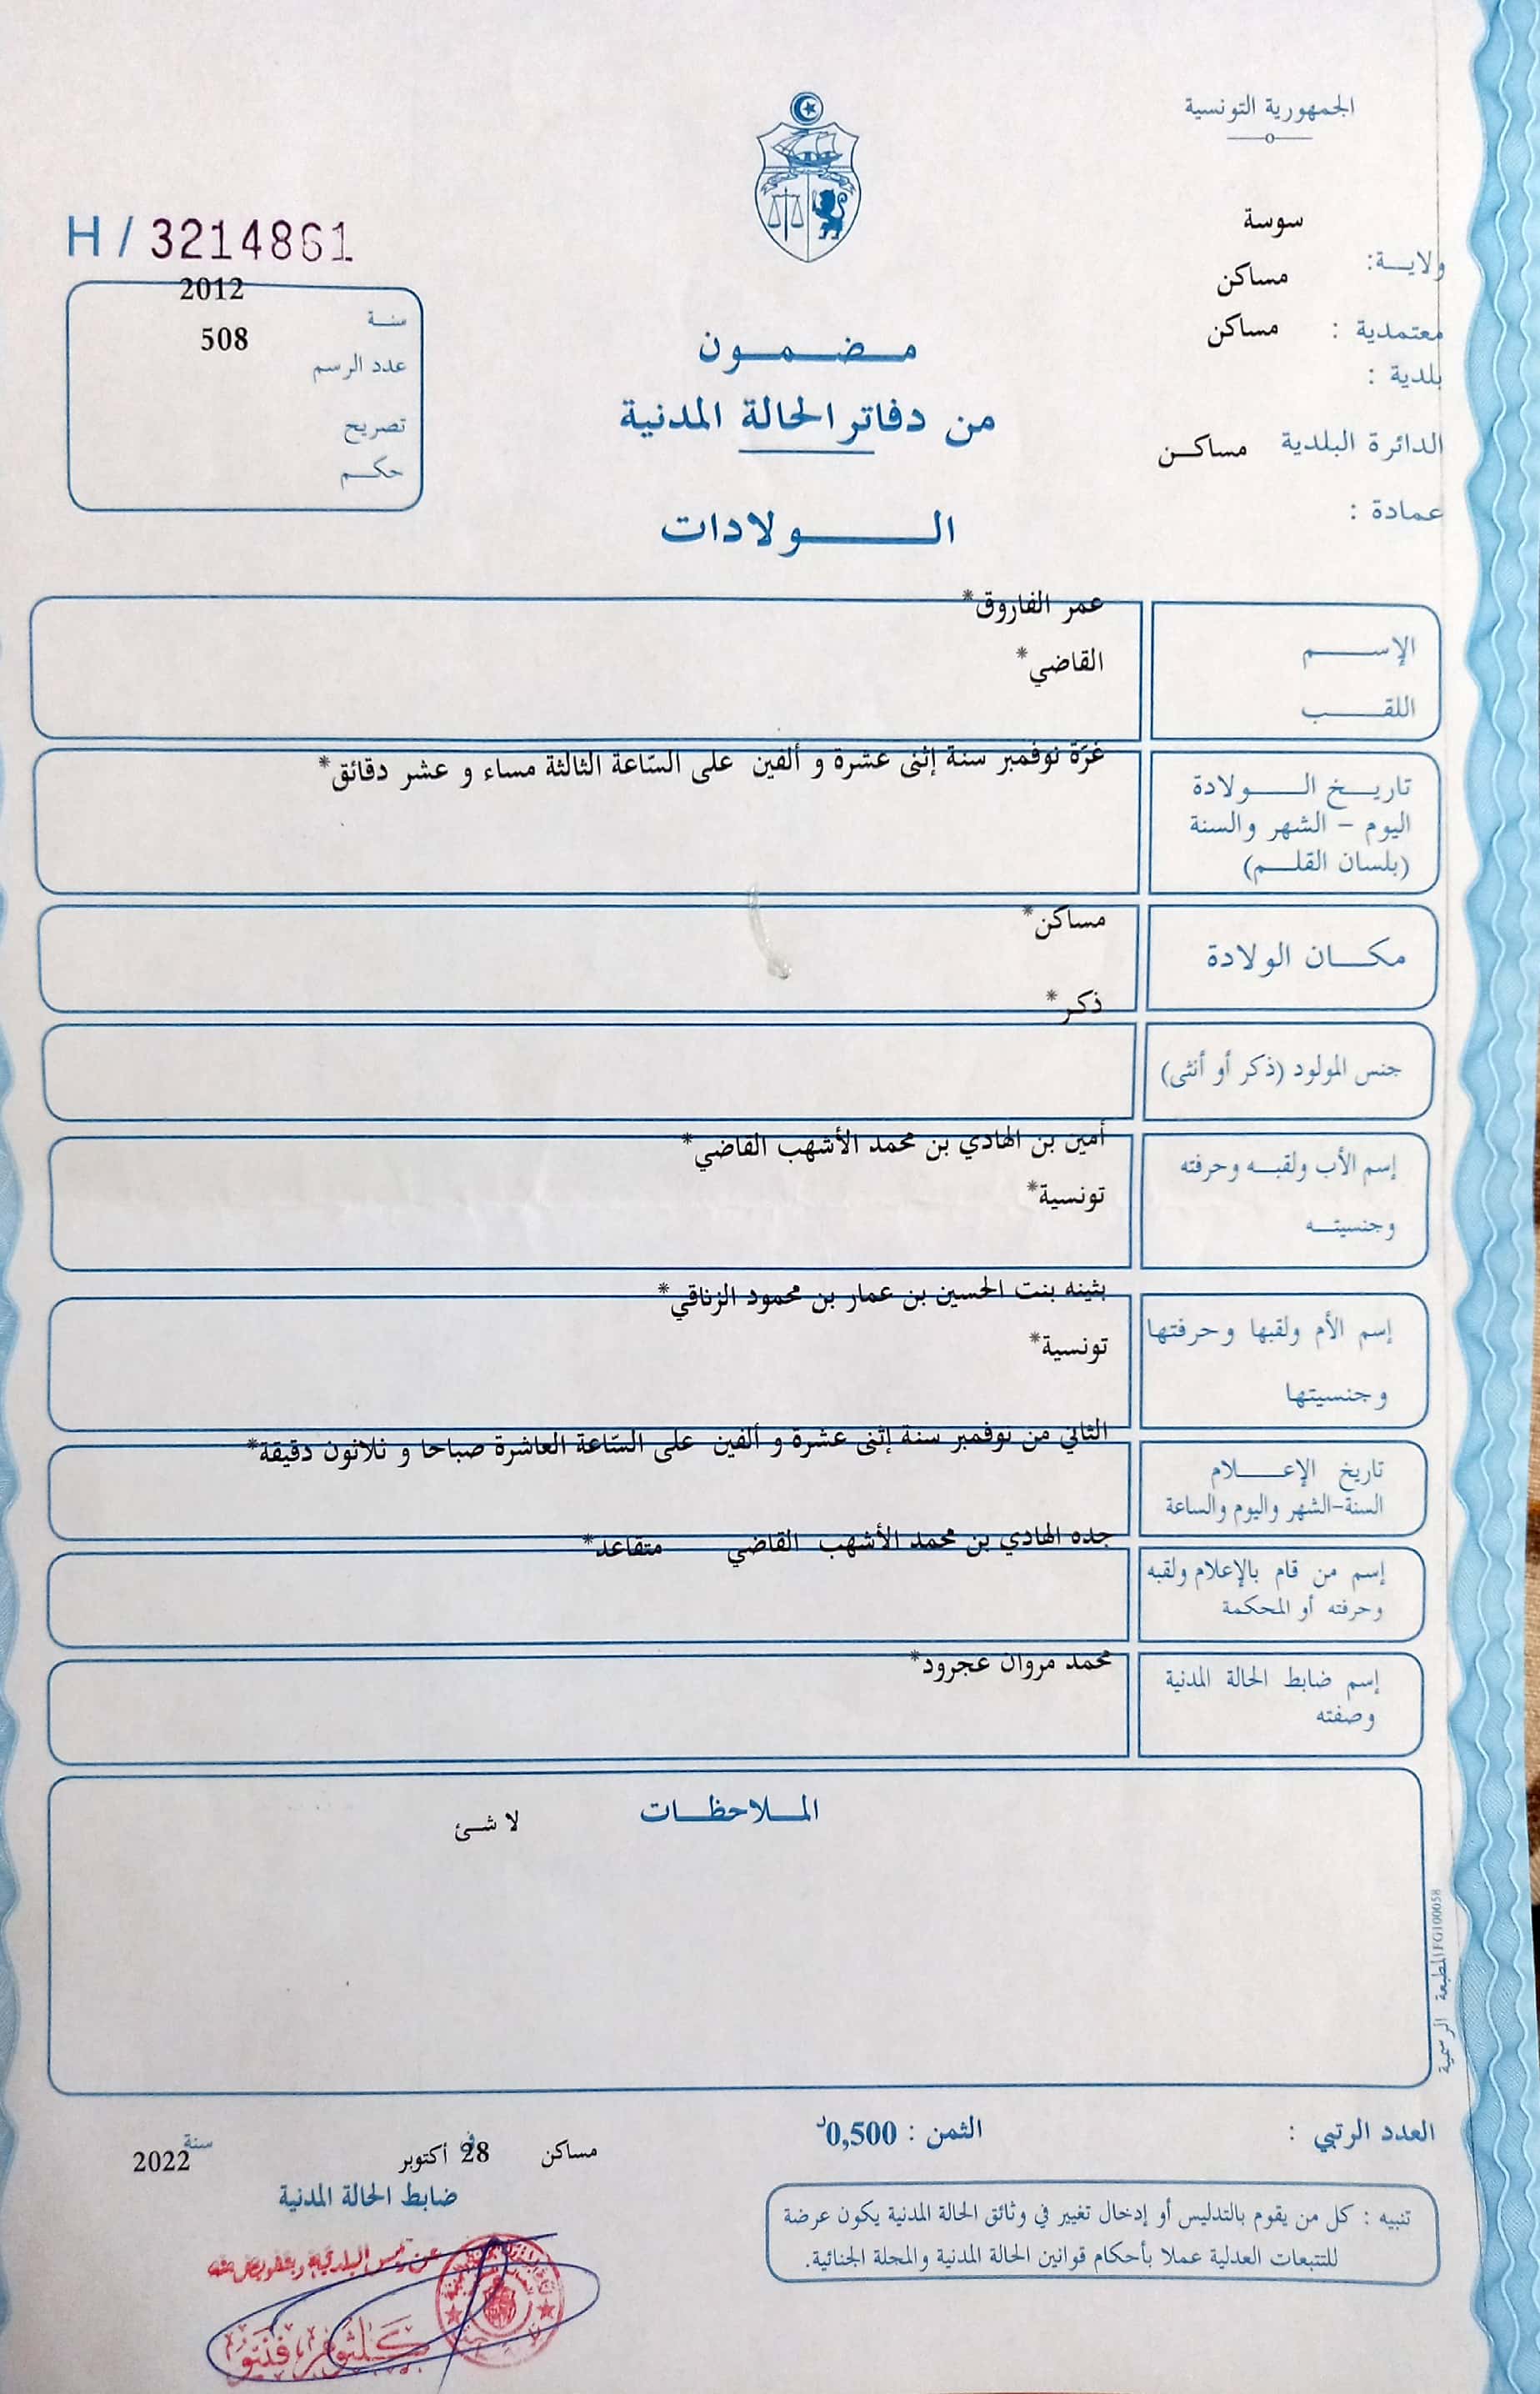 الجمهورية التونسية
سوسة
ولاية:
مساكن
معتمدية :
مساكن
بلدية :
الدائرة البلدية مساكن
عمادة :
H / 3214861
2012
سنة
508
عدد الرسم
تصريح
حكم
مضمون
من دفاتر الحالة المدنية
الولادات
عمر الفاروق*
الإسم
القاضي*
اللقب
غرّة نوفمبر سنة إثنى عشرة و ألفين على السّاعة الثالثة مساء و عشر دقائق*
تاريخ الولادة
اليوم - الشهر والسنة
(بلسان القلم)
مساكن*
مكان الولادة
ذكر*
جنس المولود (ذكر أو أنثى)
أمين بن الهادي بن محمد الأشهب القاضي*
إسم الأب ولقبه وحرفته
تونسية*
وجنسيته
بثينه بنت الحسين بن عمار بن محمود الزناقي*
إسم الأم ولقبها وحرفتها
تونسية*
وجنسيتها
الثاني من نوفمبر سنة إثنى عشرة و ألفين على السّاعة العاشرة صباحا و ثلاثون دقيقة*
تاريخ الإعلام
السنة-الشهر واليوم والساعة
جده الهادي بن محمد الأشهب القاضي متقاعد*
إسم من قام بالإعلام ولقبه
وحرفته أو المحكمة
محمد مروان عجرود*
إسم ضابط الحالة المدنية
وصفته
الملاحظات
لا شئ
المطبعة الرسمية FG100058
العدد الرتبي :
الثمن : 0,500د
مساكن في 28 أكتوبر سنة 2022
ضابط الحالة المدنية
تنبيه : كل من يقوم بالتدليس أو إدخال تغيير في وثائق الحالة المدنية يكون عرضة
للتتبعات العدلية عملا بأحكام قوانين الحالة المدنية والمجلة الجنائية.
عن رئيس البلدية وبتفويض منه